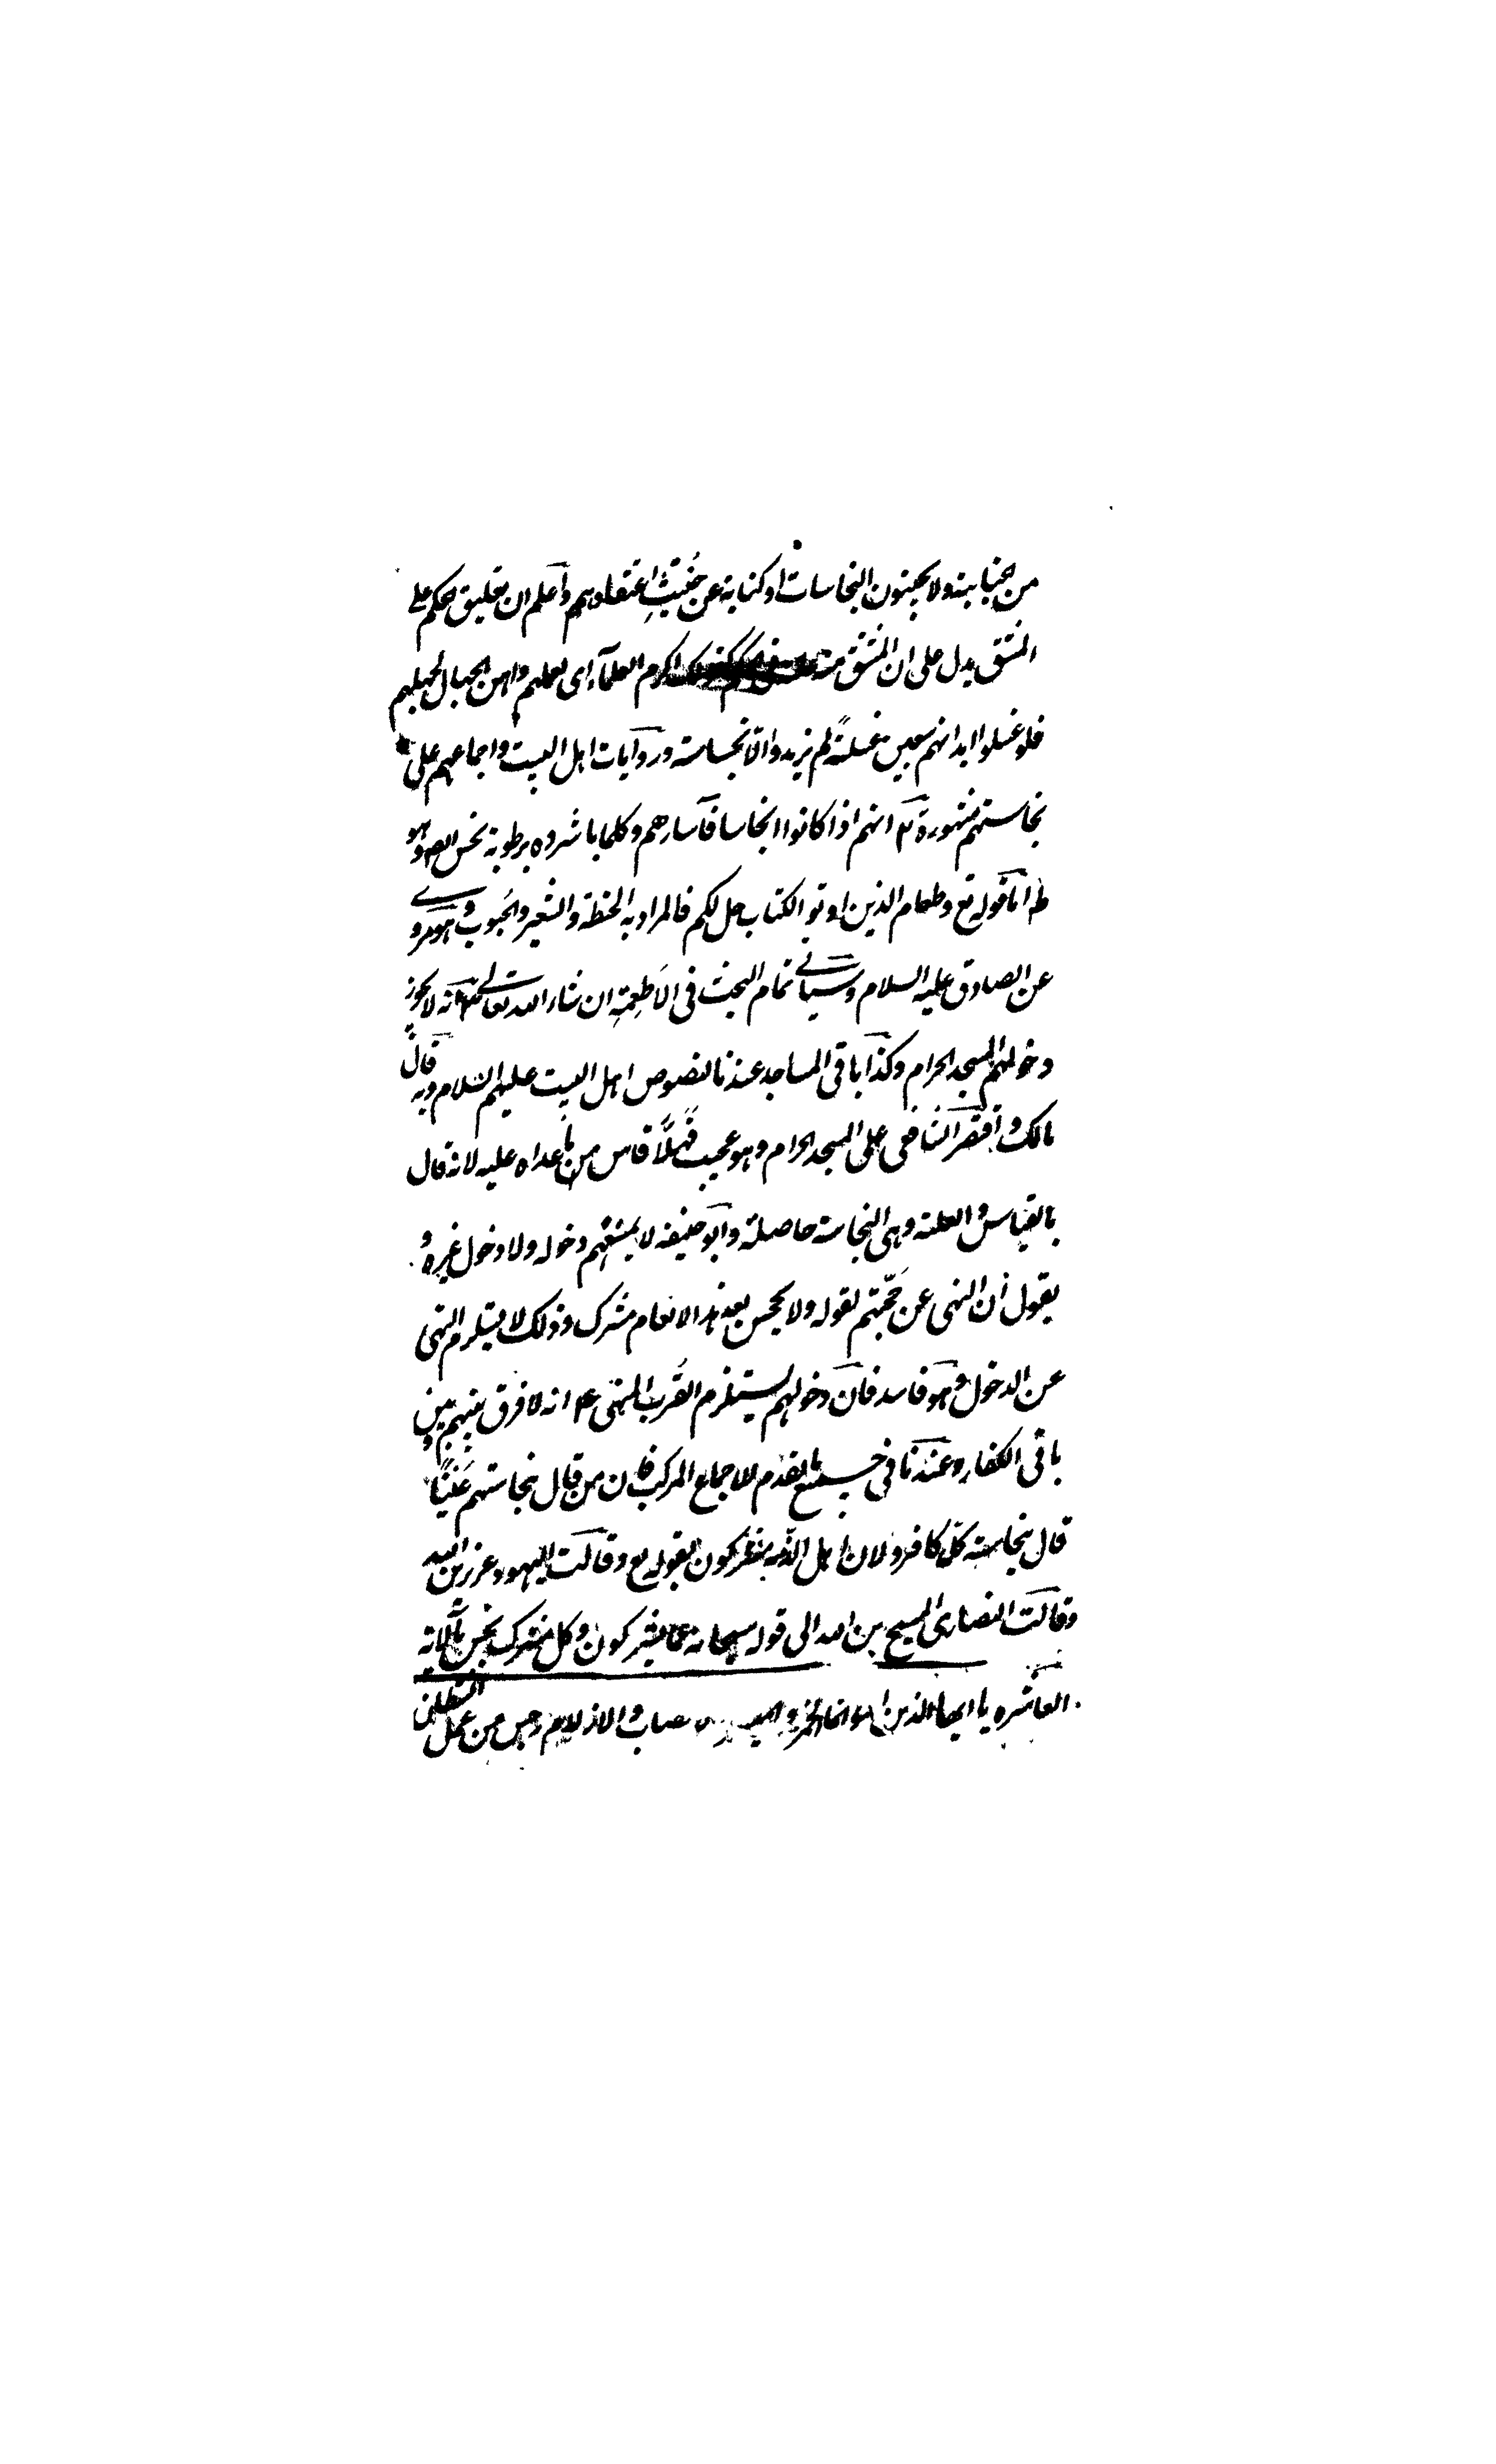 من جنابة ولا يجتنبون النجاسات او كناية عن خبث اعتقادهم واعلم ان تعليق حكم على
المشتق يدل على ان المشتق منه اكرم العلماء اى لعلمهم واهن الجهال لجهلهم
فلو غسلوا ابدانهم سبعين غسلة لم يزيدوا الا نجاسة وروايات اهل البيت واجماعهم على
نجاستهم مشهورة ٢ انهم اذا كانوا انجاسا فآسارهم وكلما باشروه برطوبة نجس ايضا وهو
ظ اما قوله تع وطعام الذين اوتوا الكتاب حل لكم فالمراد به الحنطة والشعير والحبوب وهو مروى
عن الصادق عليه السلام وسياتى تمام البحث فى الاطعمة ان شاء الله تعالى ٣ انه لا يجوز
دخولهم المسجد الحرام وكذا باقى المساجد عندنا لنصوص اهل البيت عليهم السلام وبه قال
مالك واقتصر الشافعى على المسجد الحرام وهو عجيب فهلا قاس من ما عداه عليه لانه قال
بالقياس والعلة وهى النجاسة حاصلة وابو حنيفة لا يمنعهم دخوله ولا دخول غيره و
يقول ان النهى عن حجهم لقوله ولا يحجن بعد هذا العام مشرك وذلك لا يستلزم النهى
عن الدخول وهو فاسد فان دخولهم يستلزم القرب المنهى ٤ انه لا فرق بينهم وبين
باقى الكفار وعندنا فى جميع ما تقدم للاجماع المركب فان من قال بنجاستهم عينا
قال بنجاسة كل كافر ولان اهل الذمة مشركون لقوله تع وقالت اليهود عزير بن الله
وقالت النصارى المسيح بن الله الى قوله سبحانه عما يشركون وكل مشرك نجس بالآية
العاشره يا ايها الذين امنوا انما الخمر والميسر والانصاب والازلام رجس من عمل الشيطان